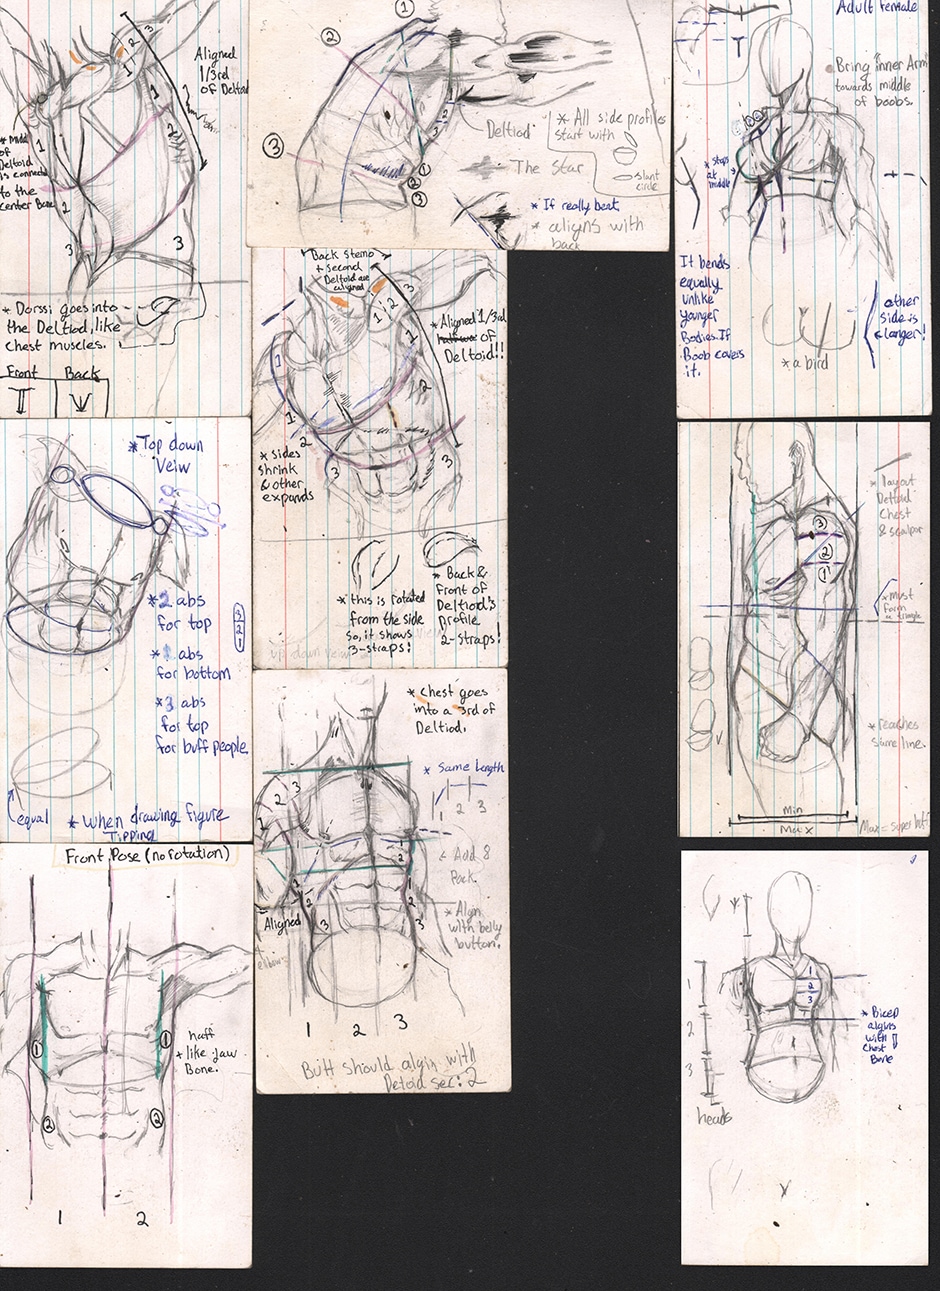 Aligned
1/3rd
of Deltoid
1
2
3
1
2
3
1
2
3
* Midd
of
Deltoid
is connects
to the
center Bone
* Dorssi goes into
the Deltiod, like
chest muscles.
Front
Back
1
2
3
Deltiod
* All side profiles
start with
The Star
slant
circle
* If really bent
* aligns with
back
1
2
3
Adult female
* Bring "inner Arm"
towards middle
of boobs.
* stops
at
middle
It bends
equally
unlike
younger
Bodies. If
Boob covers
it.
other
side is
Longer!
* a bird
Back Stemo
+ second
Deltoid are
aligned
* Aligned 1/3rd
of
Deltoid!!
1
2
3
1
2
3
1
2
3
* sides
shrink
& other
expands
* this is rotated
from the side
so, it shows
3-straps!
* Back &
Front of
Deltiod's
profile
2-straps!
up down view
* Top down
Veiw
* 2 abs
for top
* 1 abs
for bottom
* 3 abs
for top
for buff people
3
2
1
equal
* When drawing figure
Tipping
* layout
Deltoid
Chest
& scalpar
3
2
1
* Must
form
a triangle
* reaches
same line.
Min
Max
Max = super buff
* Chest goes
into a 3rd of
Deltiod.
* Same Length
1 2 3
Add 8
Pack.
* Align
with belly
button.
Aligned
elbow
1 2 3
Butt should algin with
Detoid sec: 2
Front Pose (no rotation)
1
1
haff
+ like jaw
Bone.
2
2
1 2
1
2
3
heads
1
2
3
* Bicep
algins
with
Chest
Bone